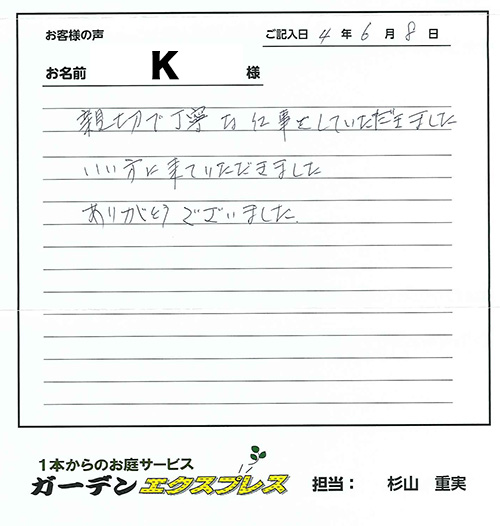 お客様の声
ご記入日 4 年 6 月 8 日
お名前 K 様
親切で丁寧な仕事をしていただきました
いい方に来ていただきました
ありがとうございました。
1本からのお庭サービス
ガーデンエクスプレス 担当： 杉山 重実